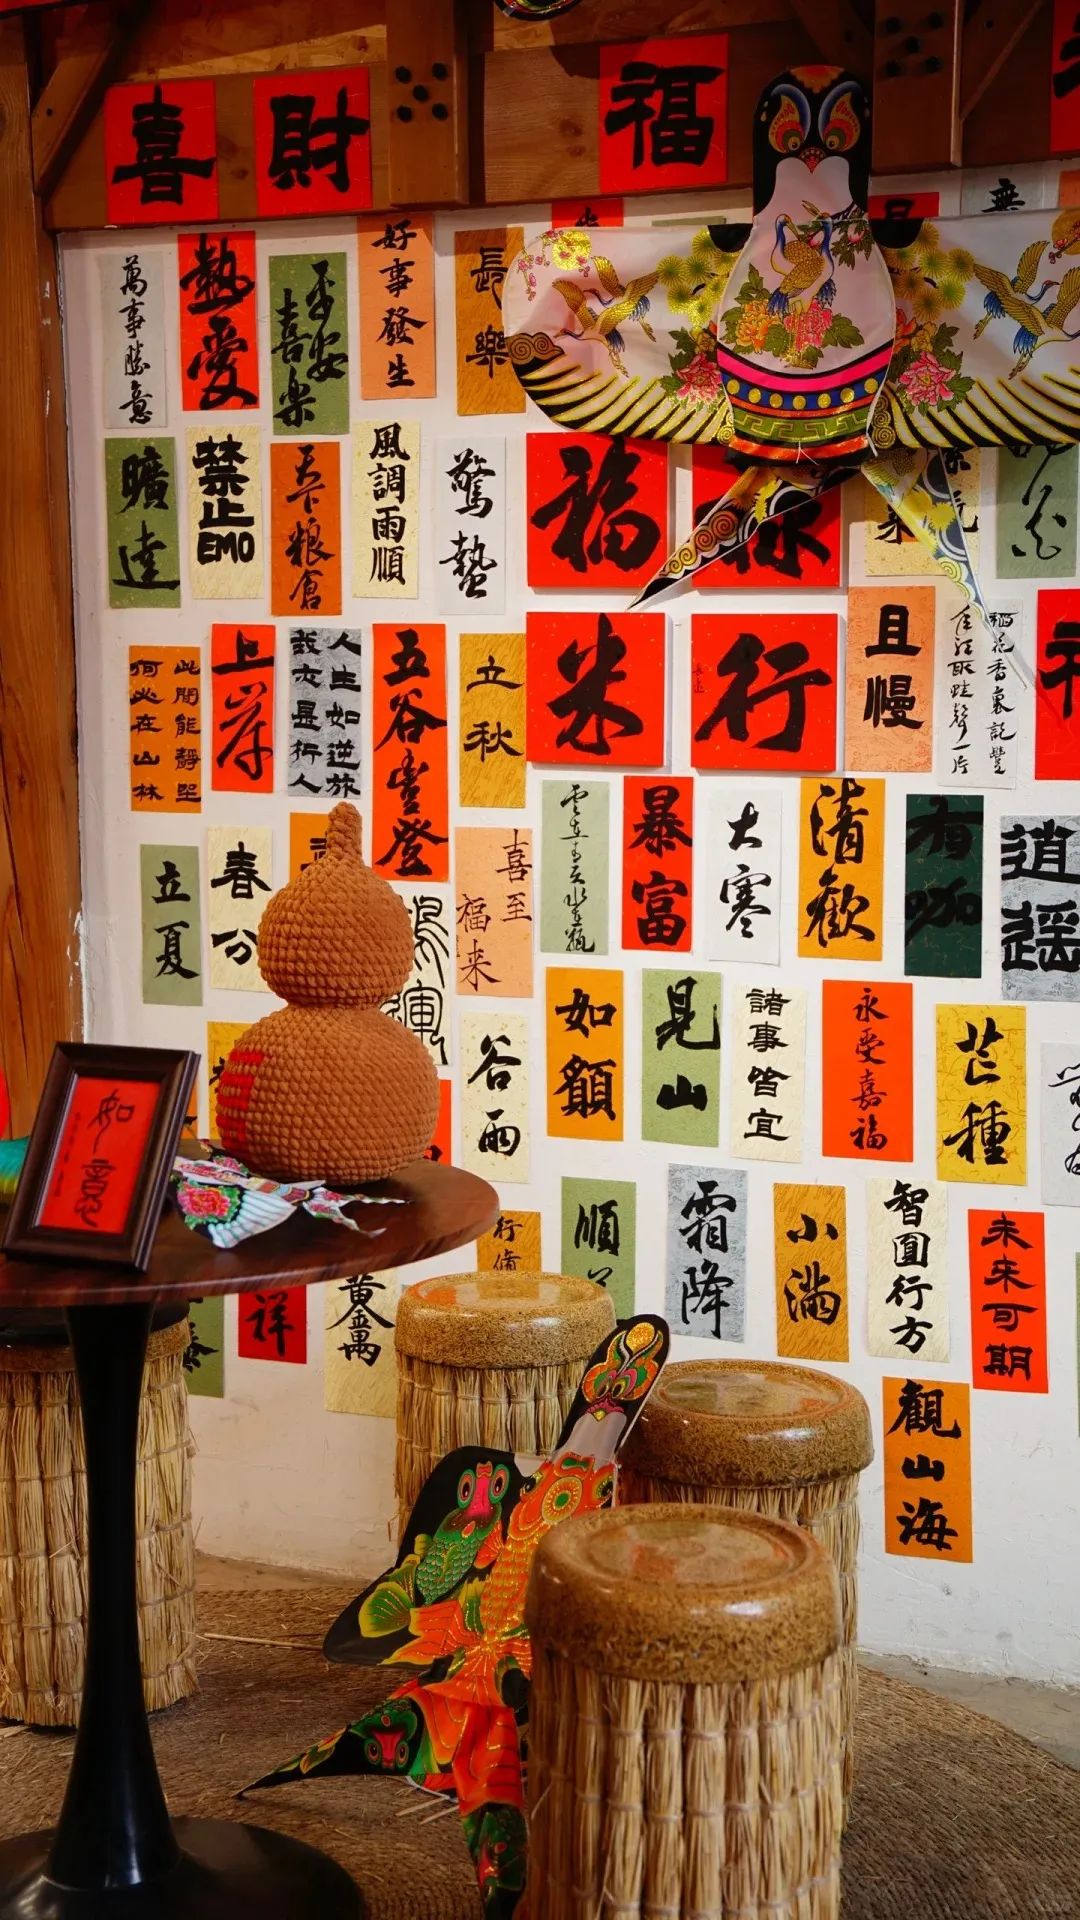 喜
財
福
萬事勝意
熱愛
平安
喜樂
好事發生
長樂
曠達
禁止EMO
天下粮倉
風調雨順
驚蟄
福
米
行
且慢
稻花香裏說豐
年聽取蛙聲一片
此間能靜坐
何必在山林
上岸
人生如逆旅
我亦是行人
五谷豐登
立秋
立夏
春分
喜至
福来
雲在青天水在瓶
暴富
大寒
清歡
有咖
逍遥
谷雨
如願
見山
諸事皆宜
永受嘉福
芒種
如意
祥
黃金萬
順
霜降
小滿
智圓行方
未来可期
觀山海